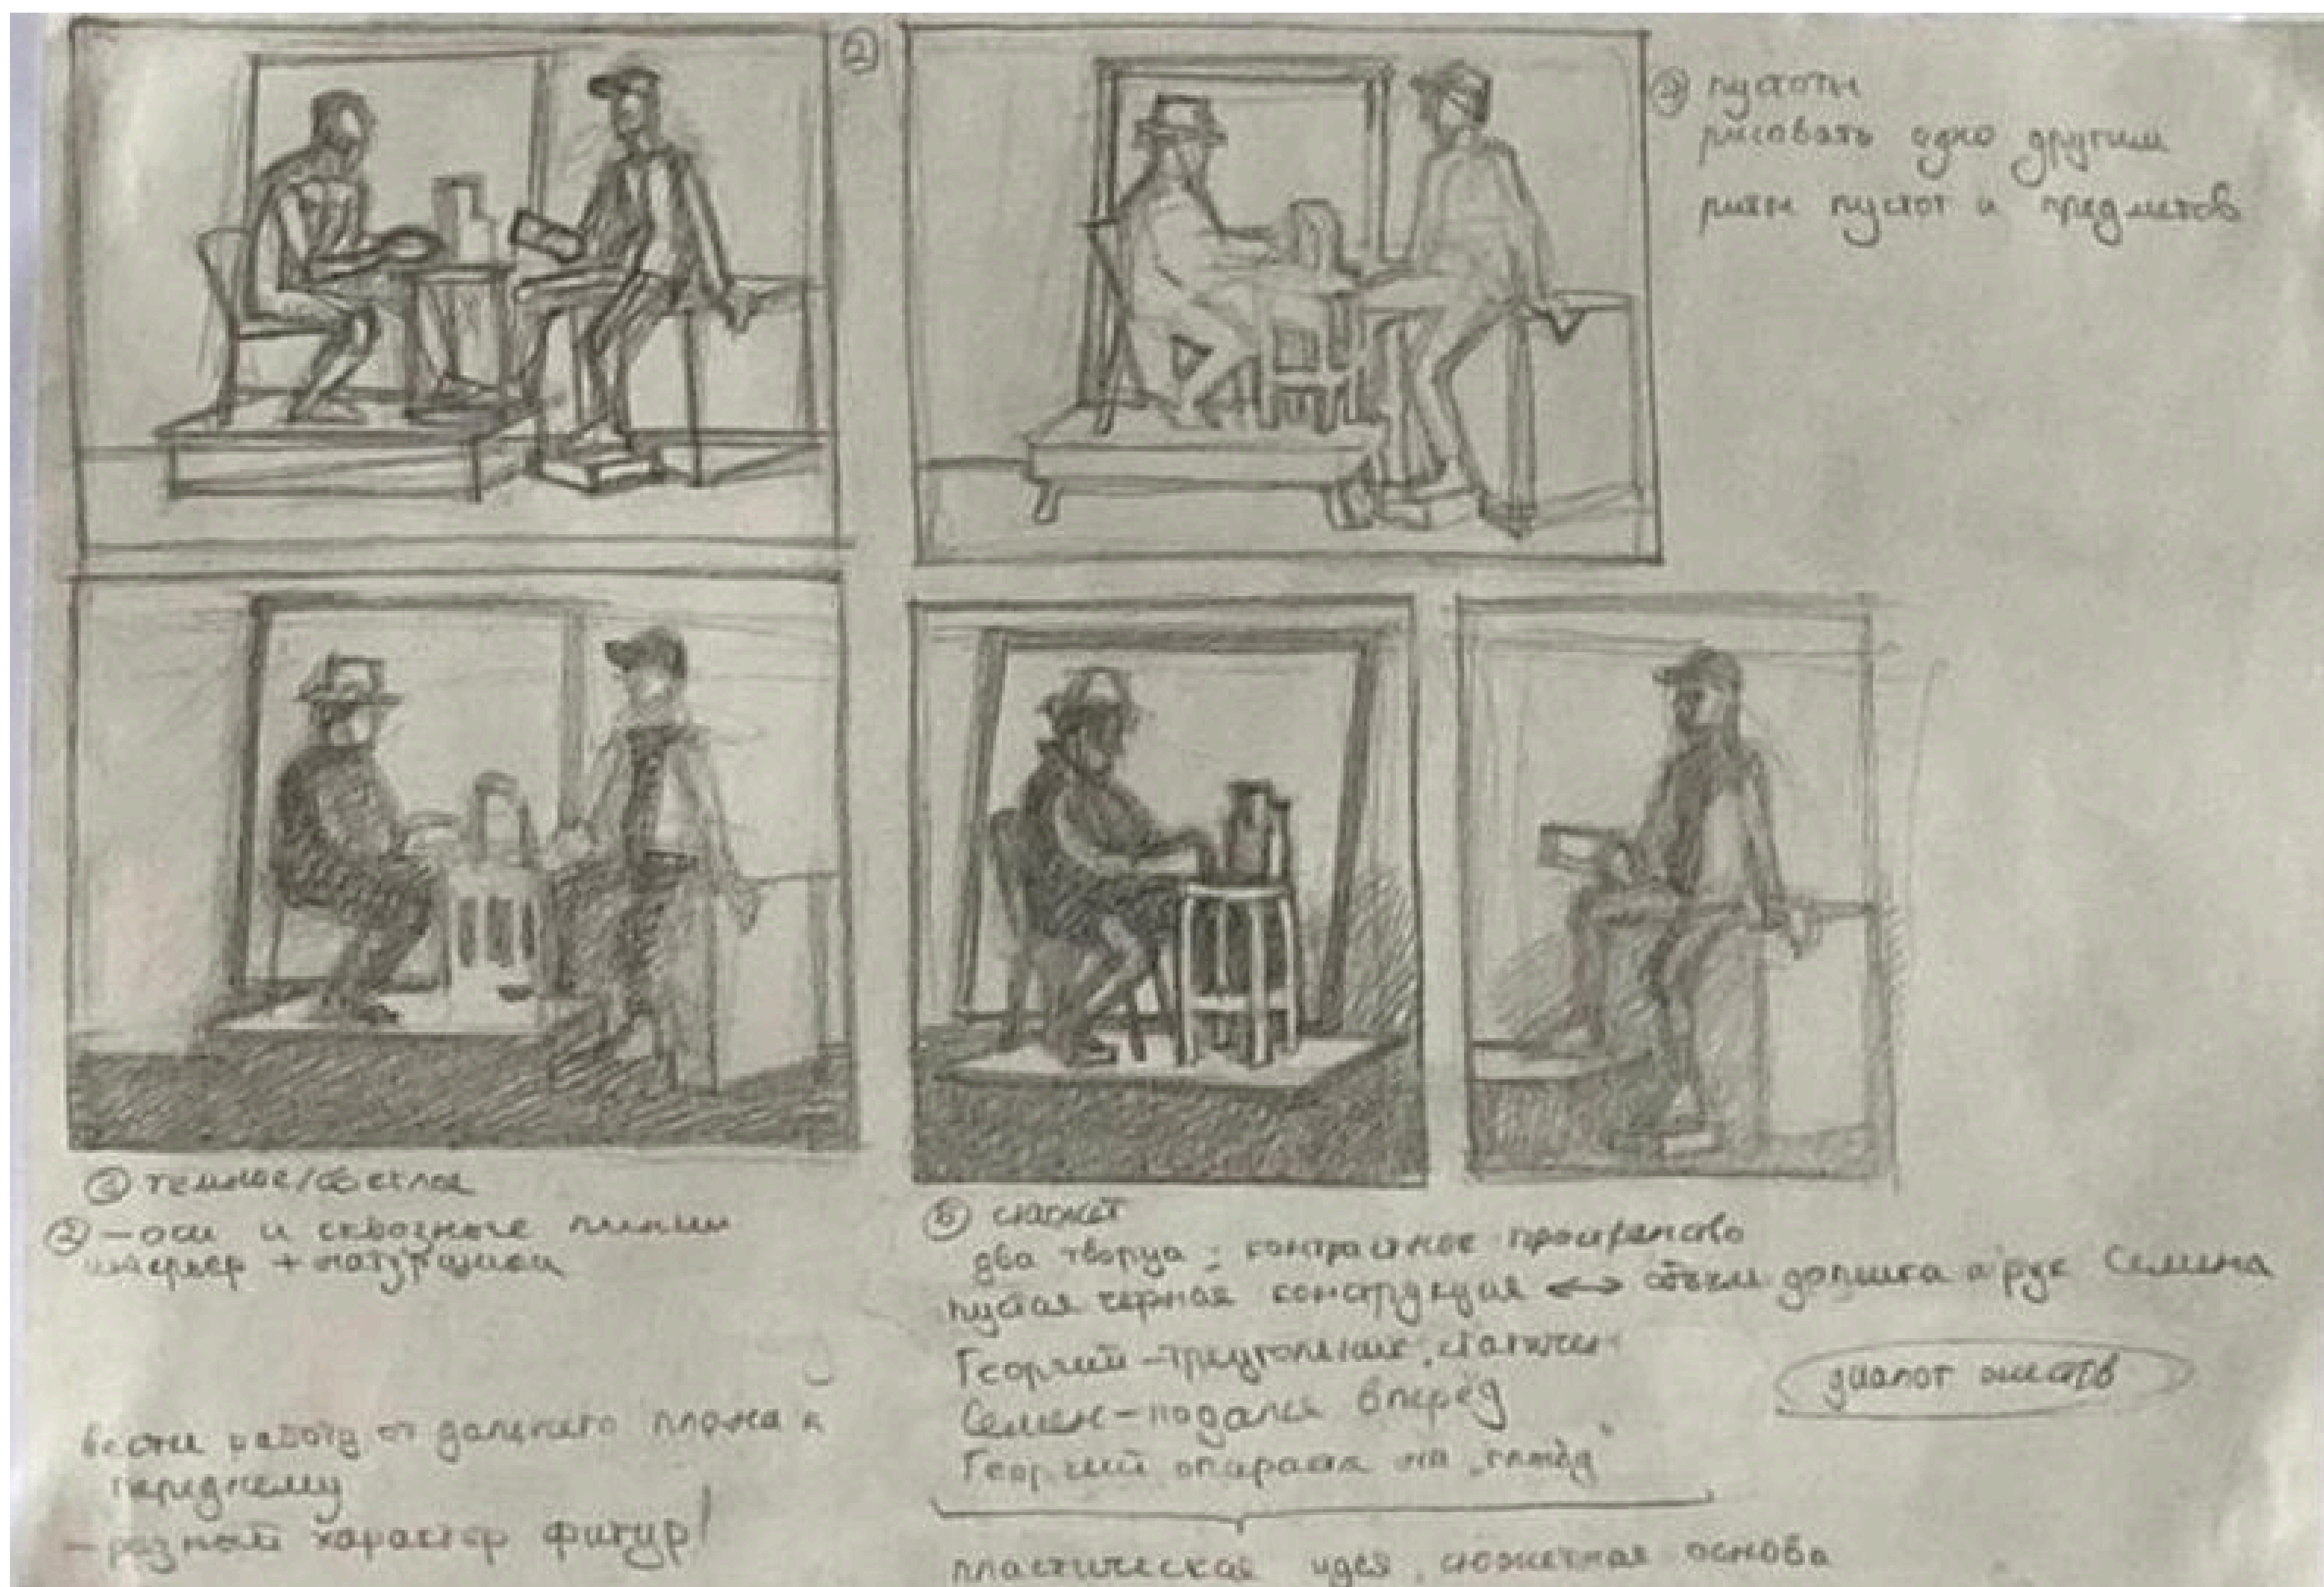 ②
③ пустоты
рисовать одно другим
ритм пустот и предметов
① темное/светлое
② – оси и сквозные линии
интерьер + натурщики
вести работу от дальнего плана к
переднему
– разный характер фигур!
⑤ сюжет
два творца : контрастное пространство
пустая черная конструкция ⟷ объем рук Семена
Георгий – треугольник, статичен
Семен – подался вперёд
Георгий опирается на
диалог
пластическая идея, сюжетная основа